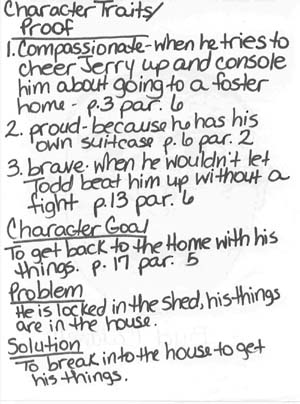 Character Traits/
Proof
1. Compassionate - when he tries to
cheer Jerry up and console
him about going to a foster
home - p.3 par. 6
2. proud - because he has his
own suitcase p. 6 par. 2
3. brave - when he wouldn't let
Todd beat him up without a
fight p.13 par. 6
Character Goal
To get back to the Home with his
things. p. 17 par. 5
Problem
He is locked in the shed, his things
are in the house.
Solution
To break into the house to get
his things.